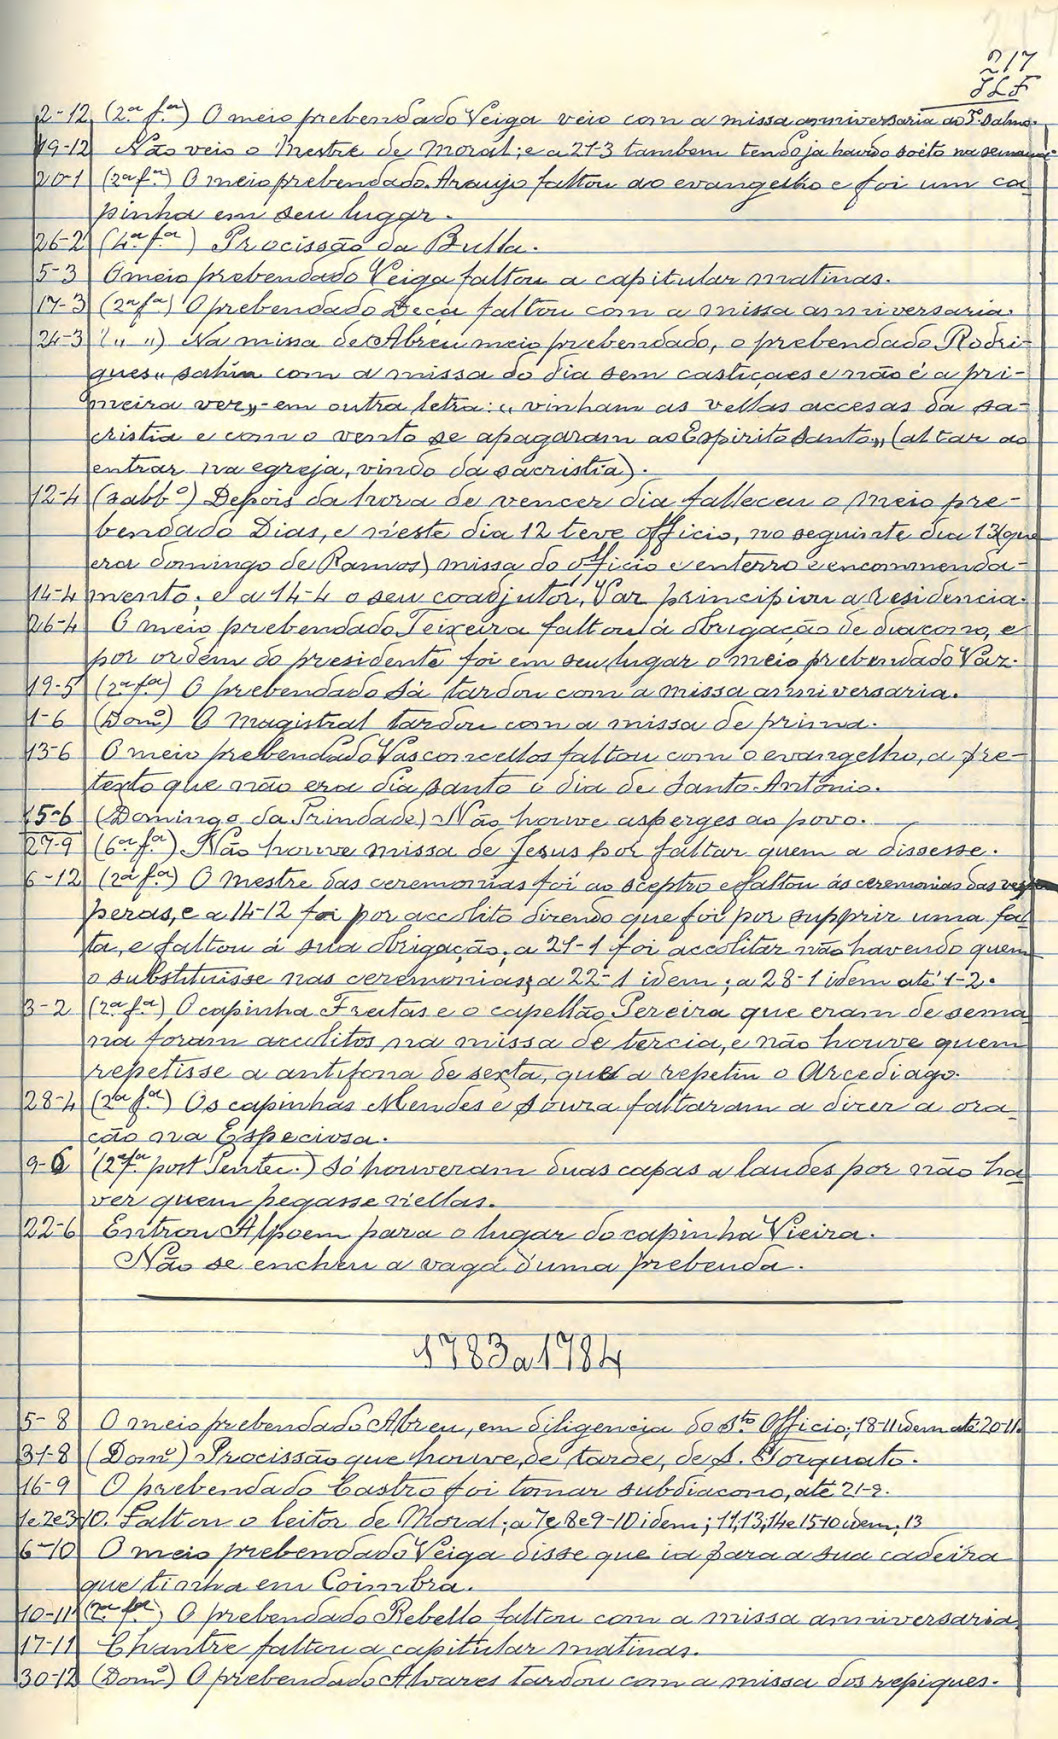 217
JLF
2-12 (2ª fª) O meio prebendado Veiga veio com a missa anniversaria ao 5º Salmo.
19-12 Não veio o Mestre de Moral; e a 21-3 tambem tendo ja havido soeto na semana
20-1 (2ª fª) O meio prebendado Araujo faltou ao evangelho e foi um ca-
pinha em seu lugar.
26-2 (4ª fª) Procissão da Bulla.
5-3 O meio prebendado Veiga faltou a capitular matinas.
17-3 (2ª fª) O prebendado Deça faltou com a missa anniversaria.
24-3 (" ") Na missa de Abreu meio prebendado, o prebendado Rodri-
gues "sahiu com a missa do dia sem castiçaes e não é a pri-
meira vez"- em outra letra: "vinham as vellas accesas da sa-
cristia e com o vento se apagaram ao Espirito Santo" (altar ao
entrar na egreja, vindo da sacristia).
12-4 (sabbº) Depois da hora de vencer dia falleceu o meio pre-
bendado Dias, e n'este dia 12 teve officio, no seguinte dia 13 (que
era domingo de Ramos) missa do officio e enterro e encommenda-
14-4 mento; e a 14-4 o seu coadjutor, Vaz principiou a residencia.
26-4 O meio prebendado Teixeira faltou á obrigação de diacono, e
por ordem do presidente foi em seu lugar o meio prebendado Vaz.
19-5 (2ª fª) O prebendado Sá tardou com a missa anniversaria.
1-6 (Domº) O Magistral tardou com a missa de prima.
13-6 O meio prebendado Vasconcellos faltou com o evangelho, a pre-
texto que não era dia santo o dia de Santo Antonio.
15-6 (Domingo da Trindade) Não houve asperges ao povo.
27-9 (6ª fª) Não houve missa de Jesus por faltar quem a dissesse.
6-12 (2ª fª) O mestre das ceremonias foi ao sceptro e faltou ás ceremonias das ves
peras, e a 14-12 foi por accolito dizendo que foi por supprir uma fal-
ta, e faltou á sua obrigação; a 21-1 foi accolitar não havendo quem
o substituisse nas ceremonias; a 22-1 idem; a 28-1 idem até 1-2.
3-2 (2ª fª) O capinha Freitas e o capellão Pereira que eram de sema-
na foram accolitos na missa de tercia, e não houve quem
repetisse a antifona de sexta, que a repetiu o Arcediago.
28-4 (2ª fª) Os capinhas Mendes e Souza faltaram a dizer a ora-
ção na Especiosa.
9-6 (2ª fª post Pentec.) Só houveram duas capas a laudes por não ha-
ver quem pegasse n'ellas.
22-6 Entrou Alpoem para o lugar do capinha Vieira.
Não se encheu a vaga d'uma prebenda.
1783 a 1784
5-8 O meio prebendado Abreu, em diligencia do Stº Officio; 18-11 idem até 20-11.
31-8 (Domº) Procissão que houve, de tarde, de S. Torquato.
16-9 O prebendado Castro foi tomar subdiacono, até 21-9.
1 e 2 e 3-10. Faltou o leitor de Moral; a 7 e 8 e 9-10 idem; 11, 13, 14 e 15-10 idem; 13
6-10 O meio prebendado Veiga disse que ia para a sua cadeira
que tinha em Coimbra.
10-11 (2ª fª) O prebendado Rebello faltou com a missa anniversaria.
17-11 Chantre faltou a capitular matinas.
30-12 (Domº) O prebendado Alvares tardou com a missa dos repiques.